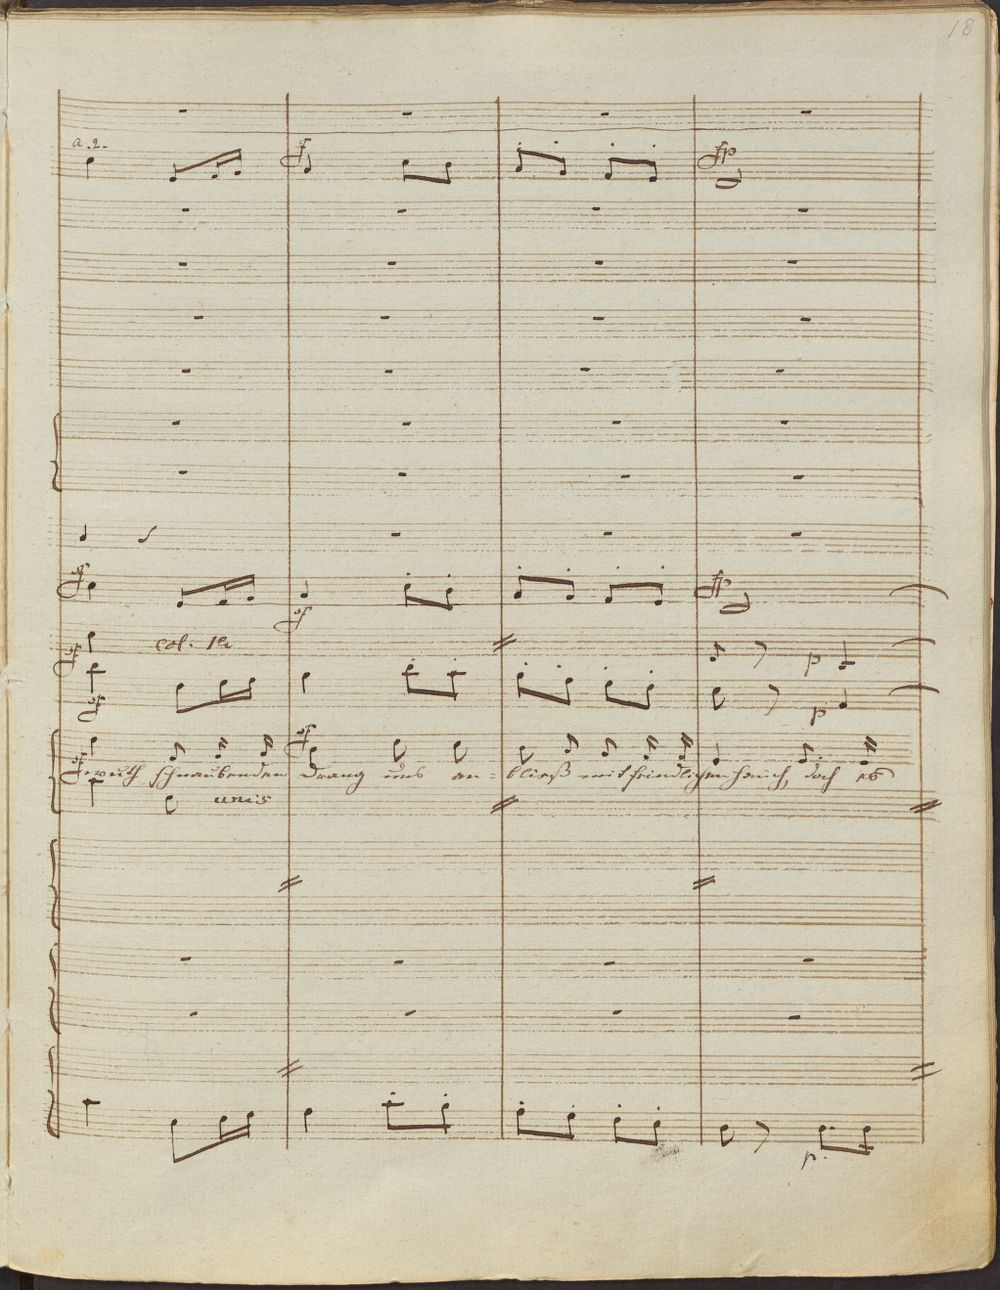 18
a. 2.
f fp
sf sf fp
sf col. 1mo p
sf p
sf sf
wuth schnaubenden Drang uns an= bließ mit feindlichem Hauch, doch es
unis
p.